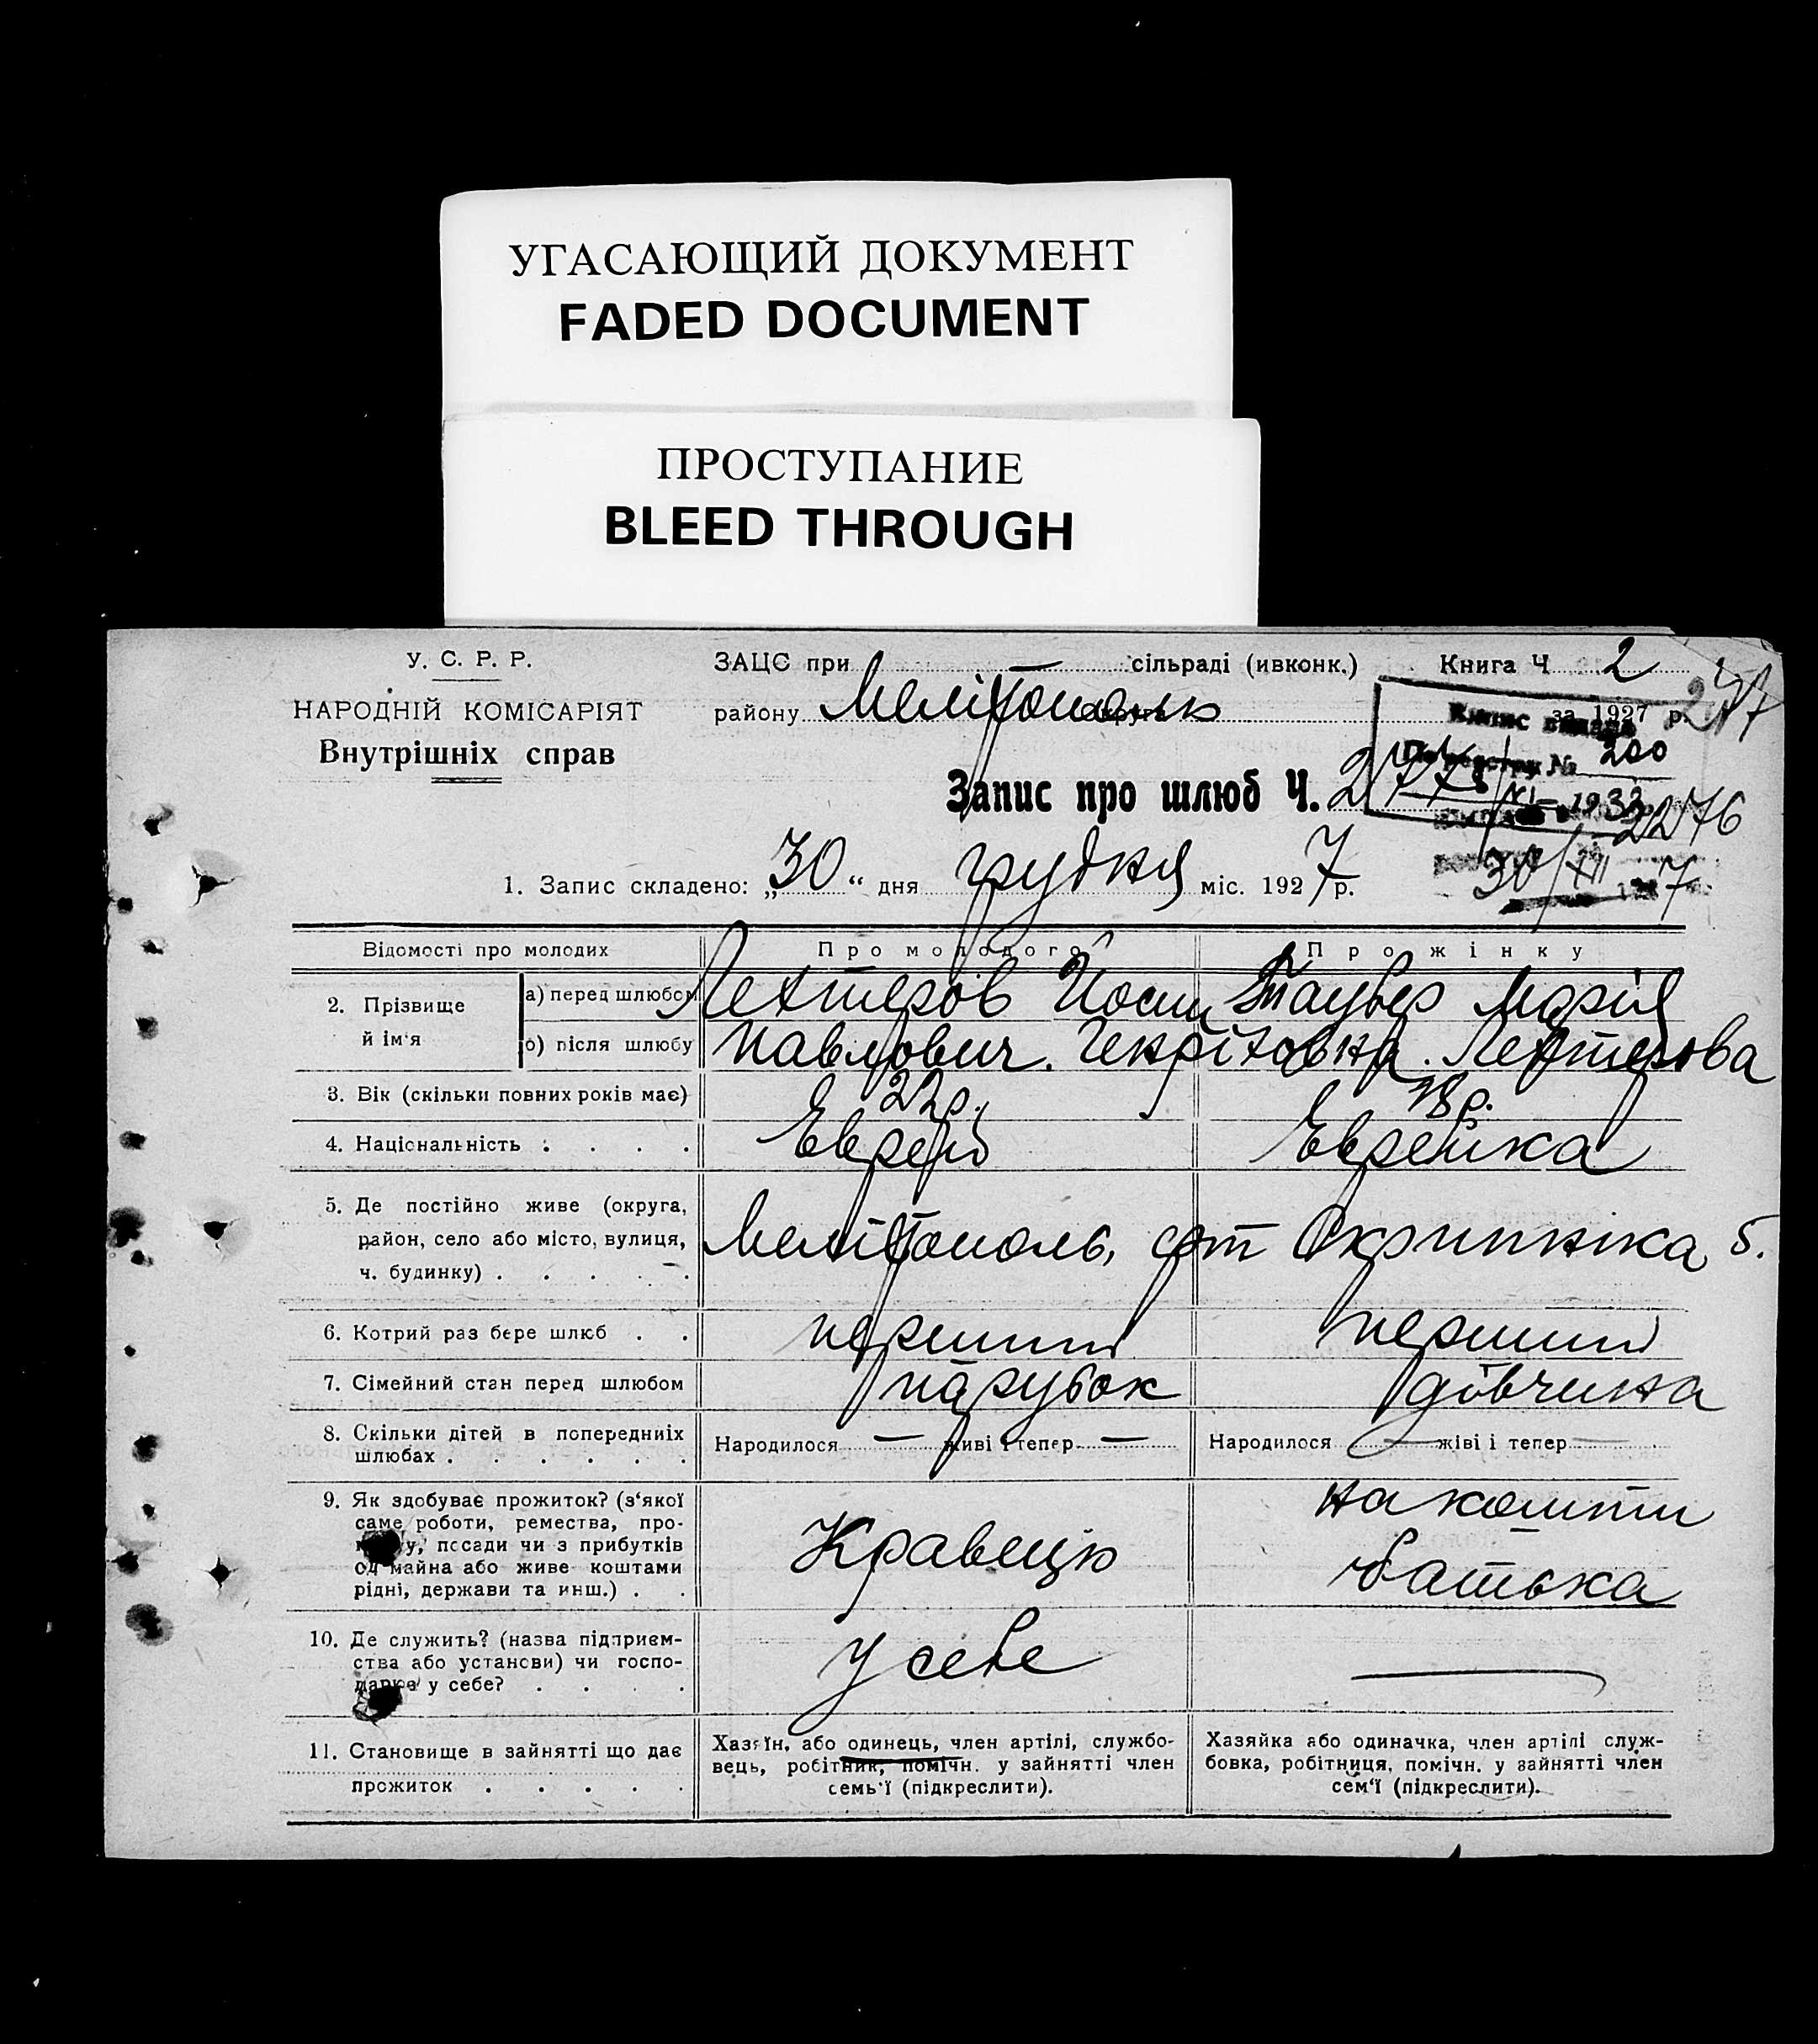 УГАСАЮЩИЙ ДОКУМЕНТ
FADED DOCUMENT
ПРОСТУПАНИЕ
BLEED THROUGH
У. С. Р. Р.
НАРОДНІЙ КОМІСАРІЯТ
Внутрішніх справ
ЗАЦС при — сільраді (ивконк.)
Книга Ч 2
району Меліtополь
за 1927 р. 277
По реестру № 200
XI - 1933
Запис про шлюб Ч. 277
2276
1. Запис складено: „30“ дня грудня міс. 1927 р.
30/XII 7
Відомості про молодих
Про молодого
Про жінку
2. Прізвище й ім'я
а) перед шлюбом
Лехтеров Йосип
Таубер Марія
б) після шлюбу
Павлович. Лехтерова
3. Вік (скільки повних років має)
22р.
18р.
4. Національність . . . .
Еврей
Еврейка
5. Де постійно живе (округа,
район, село або місто, вулиця,
ч. будинку) . . . . .
Мелітополь, Скрипніка 5.
6. Котрий раз бере шлюб . .
перший
перший
7. Сімейний стан перед шлюбом
парубок
дівчина
8. Скільки дітей в попередніх
шлюбах . . . . . .
Народилося — живі і тепер —
Народилося — жіві і тепер —
9. Як здобуває прожиток? (з'якої
саме роботи, ремества, про-
у, посади чи з прибутків
од майна або живе коштами
рідні, держави та инш.) . .
Кравець
на кошти
батька
10. Де служить? (назва підприєм-
ства або установи) чи госпо-
дарює у себе? . . . .
У себе
—
11. Становище в зайнятті що дає
прожиток . . . . .
Хазяїн, або одинець, член артілі, службо-
вець, робітник, помічн. у зайнятті член
семь'ї (підкреслити).
Хазяйка або одиначка, член артілі служ-
бовка, робітниця, помічн. у зайнятті член
сем'ї (підкреслити).